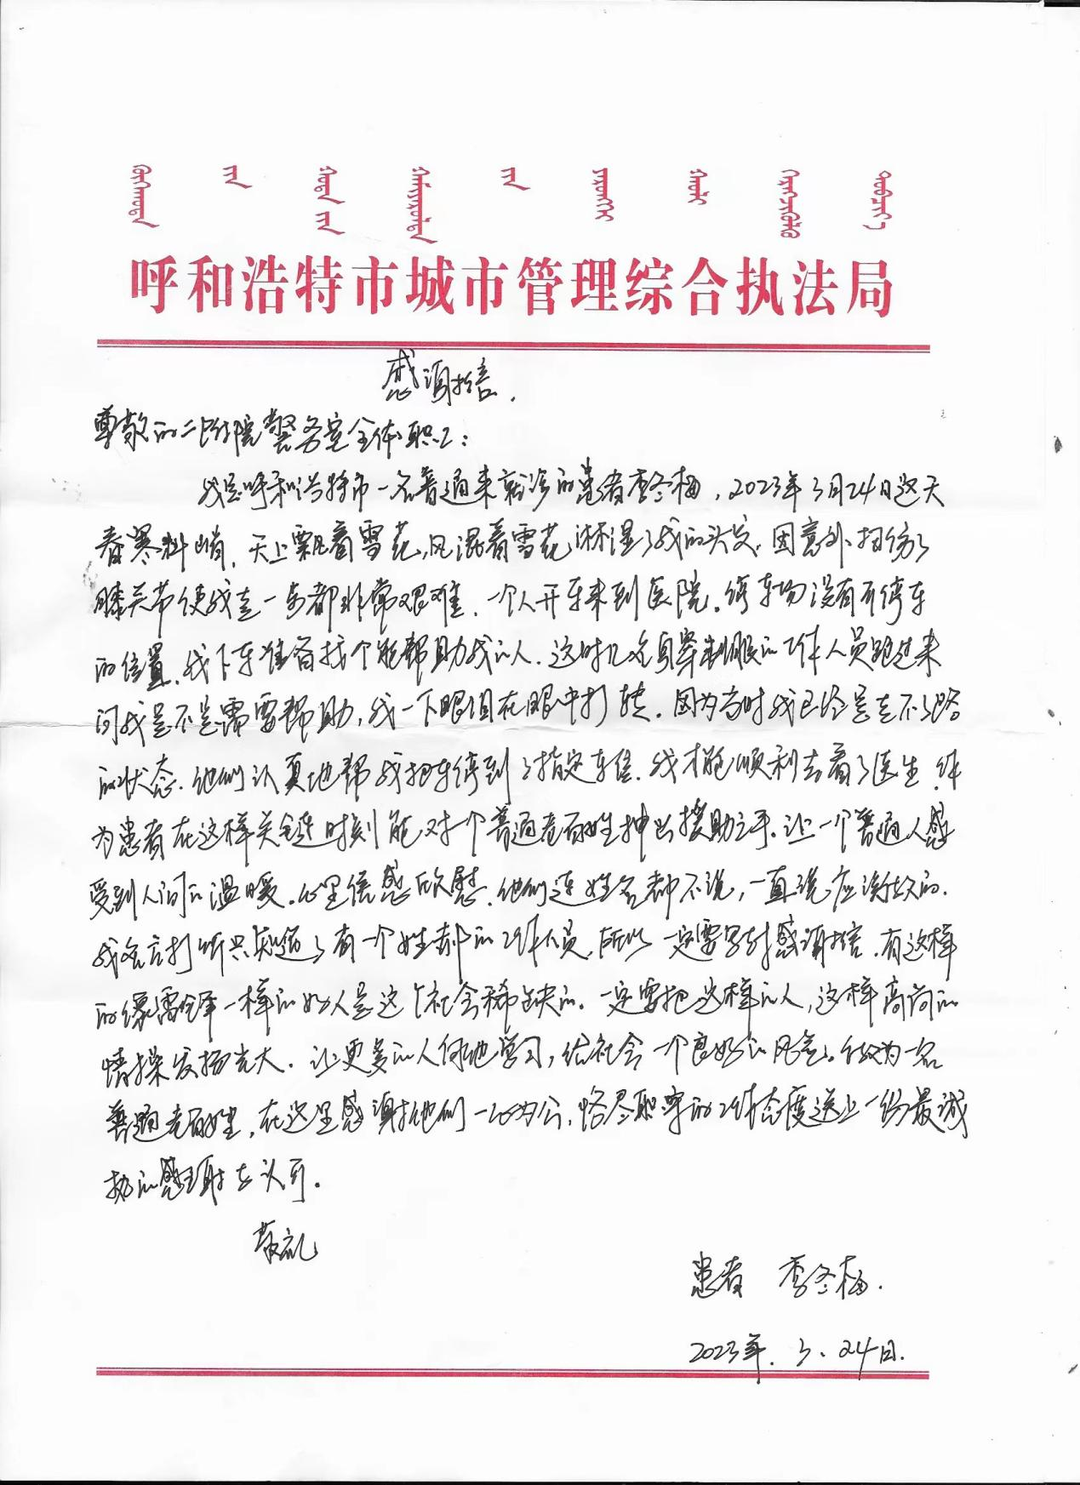 呼和浩特市城市管理综合执法局
感谢信.
尊敬的二附院警务室全体职工:
我是呼和浩特市一名普通来就诊的患者李冬梅,2023年3月24日这天
春寒料峭,天上飘着雪花,风混着雪花淋湿了我的头发,因意外扭伤了
膝关节使我走一步都非常艰难,一个人开车来到医院。停车场没有可停车
的位置,我下车准备找个能帮助我的人,这时几名身穿制服的工作人员跑过来
问我是不是需要帮助,我一下眼泪在眼中打转,因为当时我已经是走不了路
的状态.他们认真地帮我把车停到了指定车位,我才能顺利去看了医生,作
为患者在这样关键时刻能对一个普通老百姓伸出援助之手.让一个普通人感
受到人间的温暖.心里倍感欣慰.他们连姓名都不说,一直说应该做的.
我多方打听只知道了有一个姓郝的工作人员,所以一定要写封感谢信,有这样
的像雷锋一样的好人是这个社会稀缺的.一定要把这样的人,这样高尚的
情操发扬光大.让更多的人向他学习,给社会一个良好的风气.作为一名
普通老百姓,在这里感谢他们一心为公,恪尽职守的工作态度送上一份最诚
挚的感谢与认可。
敬礼
患者 李冬梅.
2023年.3.24日.